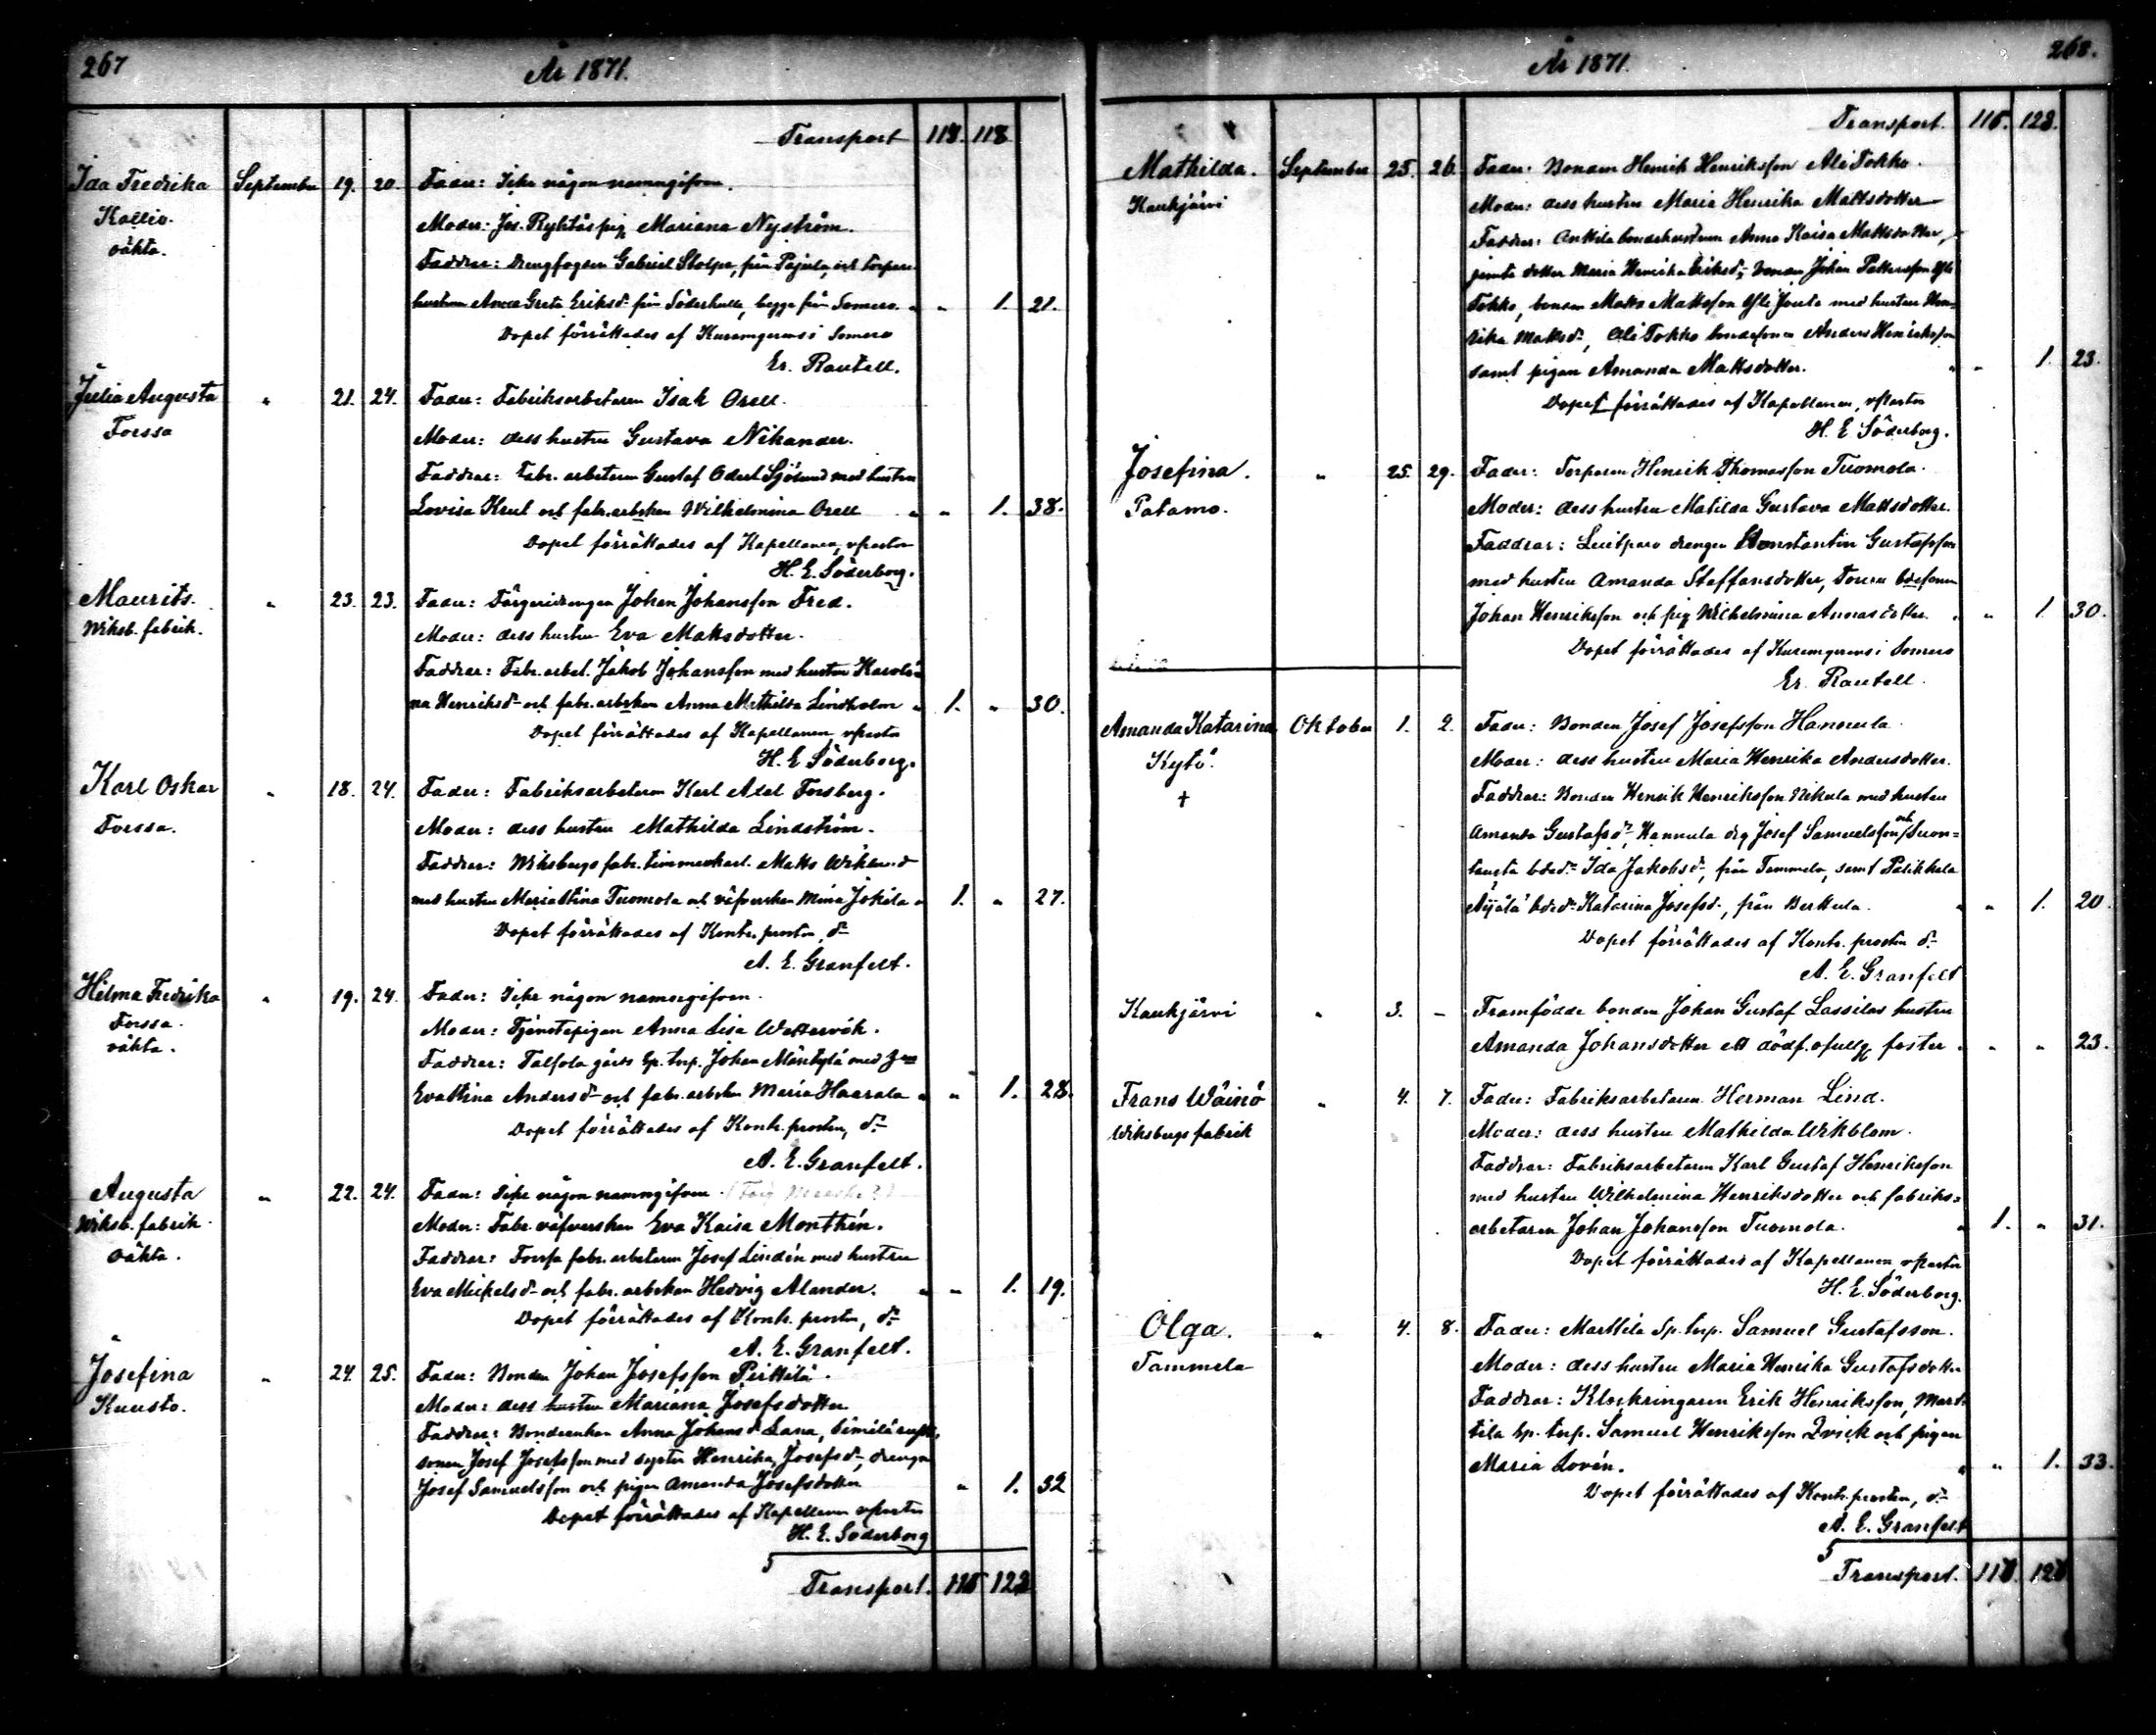 267
År 1871.
Transport 113. 118
Ida Fredrika September 19. 20. Fader: Icke någon namngifven.
Kallio.
oäkta.
Moder: Jos. Ryhtäs pig Mariana Nyström.
Faddrar: Drengfogden Gabriel Stolpe, från Pajula och torpare
hustrun Anna Greta Eriksd. från Söderkulla, begge från Somero. " " 1. 21.
Dopet förrättades af Kuremgrens i Somero
Er. Rautell.
Julia Augusta " 21. 24. Fader: Fabriksarbetaren Isak Orell.
Forssa
Moder: dess hustru Gustava Nikander.
Faddrar: Fabr. arbetaren Gustaf Odert Sjölund med hustru
Lovisa Krul och fabr. arbskan Wilhelmina Orell " " 1. 38.
Dopet förrättades af Kapellanen, vpastor
H. E. Söderborg.
Maurits. " 23. 23. Fader: Färgeridrengen Johan Johansson Fred.
Wiksb. fabrik.
Moder: dess hustru Eva Mattsdotter.
Faddrar: Fabr. arbet. Jakob Johansson med hustru Karoli=
na Henriksd. och fabr. arbskan Anna Mathilda Lindholm " 1. " 30.
Dopet förrättades af Kapellanen, vpastor
H. E Söderborg.
Karl Oskar " 18. 24. Fader: Fabriksarbetaren Karl Adel Forsberg.
Forssa.
Moder: dess hustru Mathilda Lindström.
Faddrar: Wiksbergs fabr. timmerkarl. Matts Wiklund
med hustru Maria Stina Tuomola och väfverskan Mina Jokila " 1. " 27.
Dopet förrättades af Kontr. prosten, dr
A. E. Granfelt.
Hilma Fredrika " 19. 24. Fader: Icke någon namngifven.
Forssa.
oäkta.
Moder: Tjenstepigan Anna Lisa Wettervik.
Faddrar: Talsola gårds sp. torp. Johan Mäntylä med
Eva Stina Andersd. och fabr. arbskan Maria Haarala " " 1. 28.
Dopet förrättades af Kontr. prosten, dr
A. E. Granfelt.
Augusta " 22. 24. Fader: Icke någon namngifven.
Wiksb. fabrik.
oäkta.
Moder: Fabr. väfverskan Eva Kaisa Monthén.
Faddrar: Forssa fabr. arbetaren Josef Lindén med hustru
Eva Mickelsd. och fabr. arbskan Hedvig Alander. " " 1. 19.
Dopet förrättades af Kontr. prosten, dr
A. E. Granfelt.
Josefina " 24. 25. Fader: Bonden Johan Josefsson Pirttilä.
Kuusto.
Moder: dess hustru Mariana Josefsdotter
Faddrar: Bondeenkan Anna Johansd. Lana,
sonen Josef Josefsson med syster Henrika Josefsd., drengen
Josef Samuelsson och pigan Amanda Josefsdotter " 1. 32
Dopet förrättades af Kapellanen vpastor
H. E. Söderborg
Transport. 115 123
År 1871.
268.
Transport. 115. 123.
Mathilda. September 25. 26. Fader: Bonden Henrik Henriksson Ali Tokko.
Kaukjärvi
Moder: dess hustru Maria Henrika Mattsdotter
Faddrar: Anttila bondehustrun Anna Kaisa Mattsdotter,
jemte dotter Maria Henrika Eriksd., bonden Johan Pettersson Yli
Tokko, bonden Matts Mattsson Yli Jouta med hustru Hen=
rika Mattsd., Ali Tokko bondesonen Anders Henriksson
samt pigan Amanda Mattsdotter. " " 1. 23.
Dopet förrättades af Kapellanen, vpastor
H. E. Söderborg.
Josefina. " 25. 29. Fader: Torparen Henrik Thomasson Tuomola.
Patamo.
Moder: dess hustru Matilda Gustava Mattsdotter.
Faddrar: drengen Konstantin Gustafsson
med hustru Amanda Staffansdotter, bdesonen
Johan Henriksson och pig Wilhelmina Annasdotter. " " 1. 30.
Dopet förrättades af Kuremgrens i Somero
Er. Rautell.
Amanda Katarina Oktober 1. 2. Fader: Bonden Josef Josefsson Hannula.
Kytö.
†
Moder: dess hustru Maria Henrika Andersdotter.
Faddrar: Bonden Henrik Henriksson Nikula med hustru
Amanda Gustafsd., Hannula drg Josef Samuelsson och Suon=
tausta bded. Ida Jakobsd., från Tammela, samt Palikkala
Äijälä bded. Katarina Josefsd., från Berttula. " " 1. 20.
Dopet förrättades af Kontr. prosten dr
A. E. Granfelt
Kaukjärvi " 3. – Framfödde bonden Johan Gustaf Lassilas hustru
Amanda Johansdotter ett dödf. ofullg. foster. " " " 23.
Frans Wäinö " 4. 7. Fader: Fabriksarbetaren Herman Lind.
Wiksbergs fabrik
Moder: dess hustru Mathilda Wikblom.
Faddrar: Fabriksarbetaren Karl Gustaf Henriksson
med hustru Wilhelmina Henriksdotter och fabriks=
arbetaren Johan Johansson Tuomola. " 1. " 31.
Dopet förrättades af Kapellanen, vpastor
H. E. Söderborg.
Olga. " 4. 8. Fader: Marttila Sp. torp. Samuel Gustafsson.
Tammela
Moder: dess hustru Maria Henrika Gustafsdotter
Faddrar: Klockringaren Erik Henriksson, Mart=
tila sp. torp. Samuel Henriksson Qvick och pigan
Maria Lovén. " " 1. 33.
Dopet förrättades af Kontr. prosten, dr
A. E. Granfelt
Transport. 116. 128